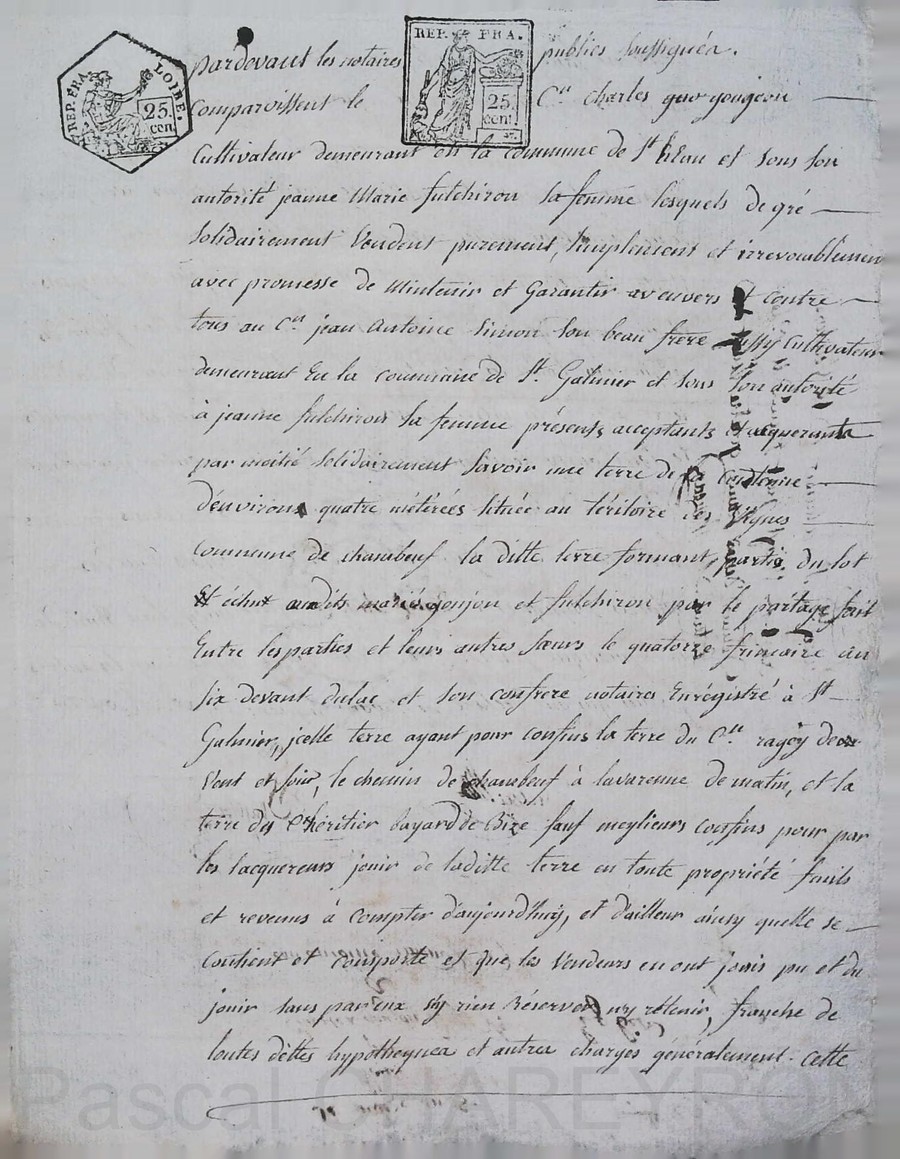 REP. FRA. LOIRE.
25 cen.
REP. FRA.
25 cent.
pardevant les notaires publics soussignés.
Comparoissent le Cen Charles goujeon
Cultivateur demeurant en la commune de St héan et sous son
autorité jeanne Marie fulchiron sa femme lesquels de gré
Solidairement Vendent purement, simplement et irrevocablemen
avec promesse de Mintenir et Garantir avenvers et contre
tous au Cen jean Antoine Simon Son beau frere aussy Cultivateur
demeurant En la commune de St. Galmier et sous Son autorité
à jeanne fulchiron sa femme présents acceptants et acquerants
par moitié Solidairement Savoir une terre de Contenue
d'environs quatre métérées Située au téritoire des Vignes
Commune de chambeuf la ditte terre formant partie du lot
Et échut audits mariés goujon et fulchiron par le partage fait
Entre les parties et leurs autres Sœurs le quatorze frimaire an
Six devant dulac et son confrere notaires Enrégistré à St
Galmier, jcelle terre ayant pour confins la terre du Cen ragoy de
Vent et soir, le chemin de chambeuf à lavarenne de matin, et la
terre des héritier bayard de Bize Sauf meylieurs confins pour par
les Lacquereurs jouir de laditte terre en toute propriété fruits
et revenus à compter d'aujourd'huy, et d'ailleur ainsy quelle se
Contient et comporte et que les Vendeurs en ont jouis pu et du
jouir sans par eux s'y rien Réserver ny retenir, franche de
toutes dettes hypotheques et autres charges généralement. Cette
Pascal CHAREYRON